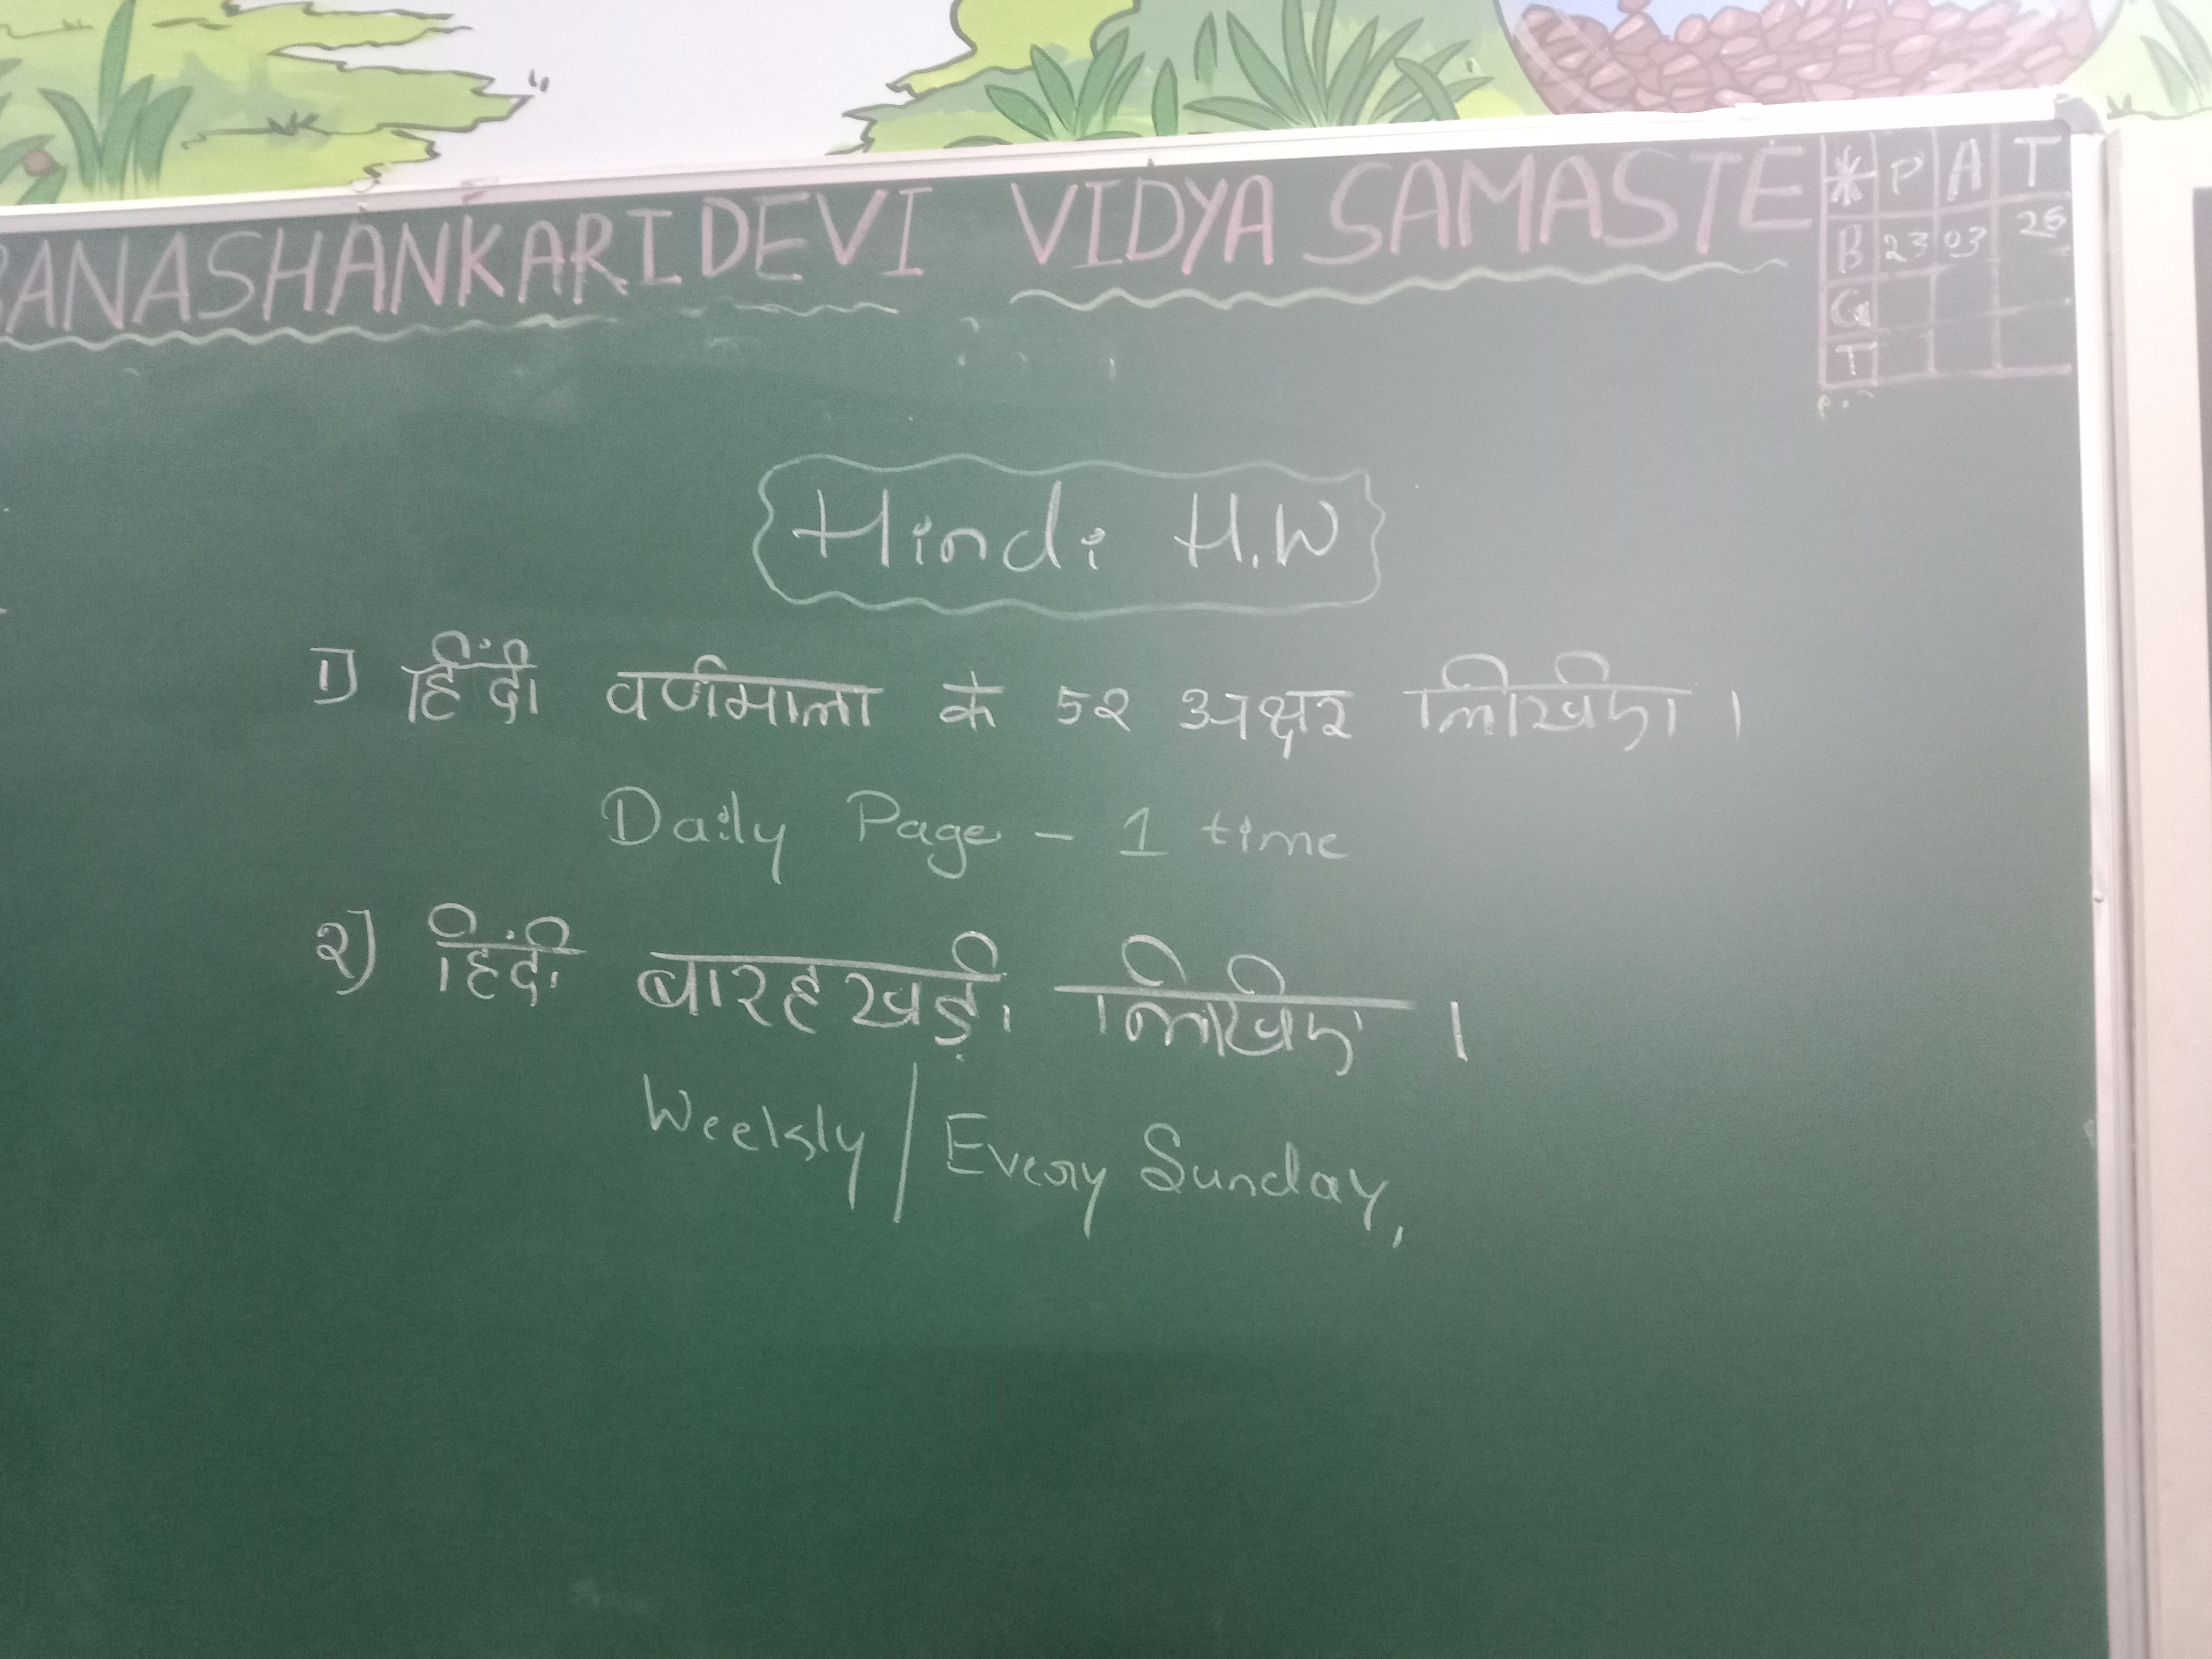 BANASHANKARI DEVI VIDYA SAMASTE
* P A T
B 23 03 26
G
T
Hindi H.W
1) हिंदी वर्णमाला के ५२ अक्षर लिखिए।
Daily Page - 1 time
२) हिंदी बारहखड़ी लिखिए।
Weekly / Every Sunday,